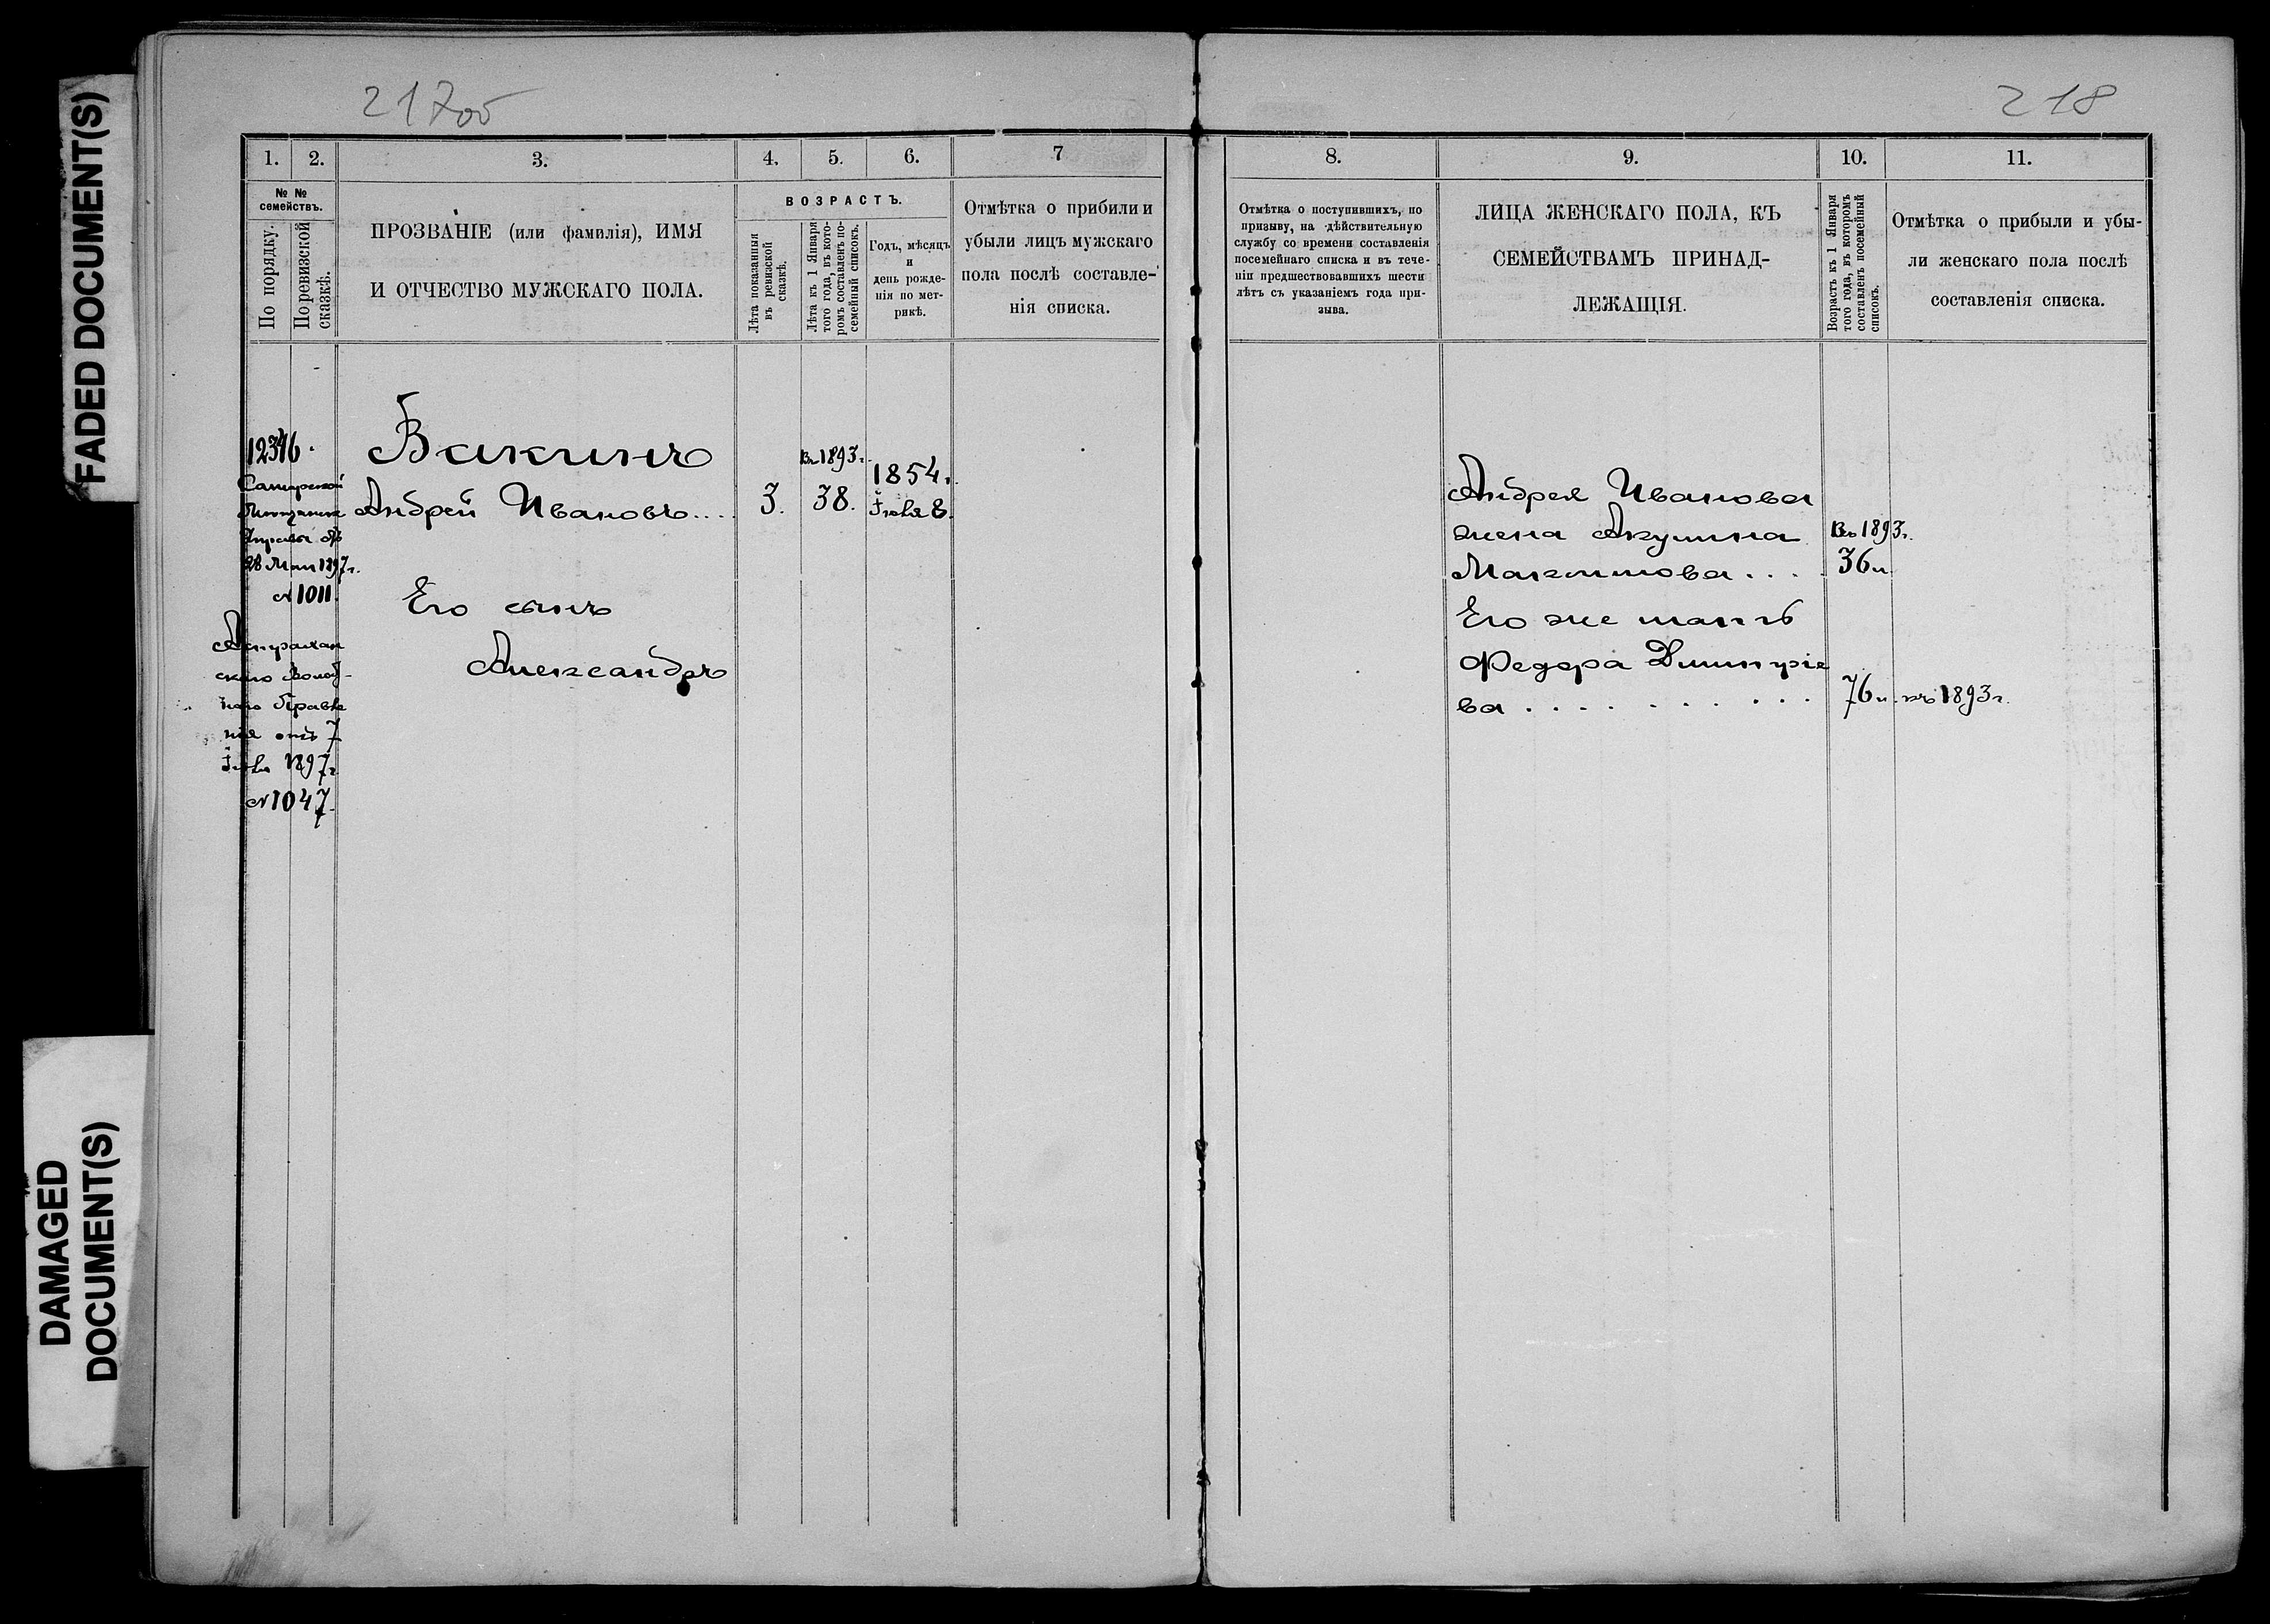 FADED DOCUMENT(S)
DAMAGED
DOCUMENT(S)
217об
1.
2.
3.
4.
5.
6.
7
№ №
семействъ.
По порядку.
По ревизской
сказкѣ.
ПРОЗВАНІЕ (или фамилія), ИМЯ
И ОТЧЕСТВО МУЖСКАГО ПОЛА.
ВОЗРАСТЪ.
Лѣта показанныя
въ ревизской
сказкѣ.
Лѣта къ 1 Января
того года, въ кото-
ромъ составленъ по-
семейный списокъ.
Годъ, мѣсяцъ
и
день рожде-
нія по мет-
рикѣ.
Отмѣтка о прибыли и
убыли лицъ мужскаго
пола послѣ составле-
нія списка.
12346.
Самарской
Мѣщанск
Управы отъ
28 Мая 1897г.
№ 1011.
скаго Волост-
наго Правле
нія отъ 7
Іюня 1897г
№ 1047.
Бакинъ
Андрей Ивановъ....
3.
Въ 1893г.
38.
1854г.
Іюля 8.
Его сынъ
Александръ
218
8.
9.
10.
11.
Отмѣтка о поступившихъ, по
призыву, на дѣйствительную
службу со времени составленія
посемейнаго списка и въ тече-
ніи предшествовавшихъ шести
лѣтъ съ указаніемъ года при-
зыва.
ЛИЦА ЖЕНСКАГО ПОЛА, КЪ
СЕМЕЙСТВАМЪ ПРИНАД-
ЛЕЖАЩІЯ.
Возрастъ къ 1 Января
того года, въ которомъ
составленъ посемейный
списокъ.
Отмѣтка о прибыли и убы-
ли женскаго пола послѣ
составленія списка.
Андрея Иванова
жена Акулина
Максимова . . .
Въ 1893г.
36л.
Его же мать
Федора Дмитріе
ва . . . . . . . . .
76л. къ 1893г.